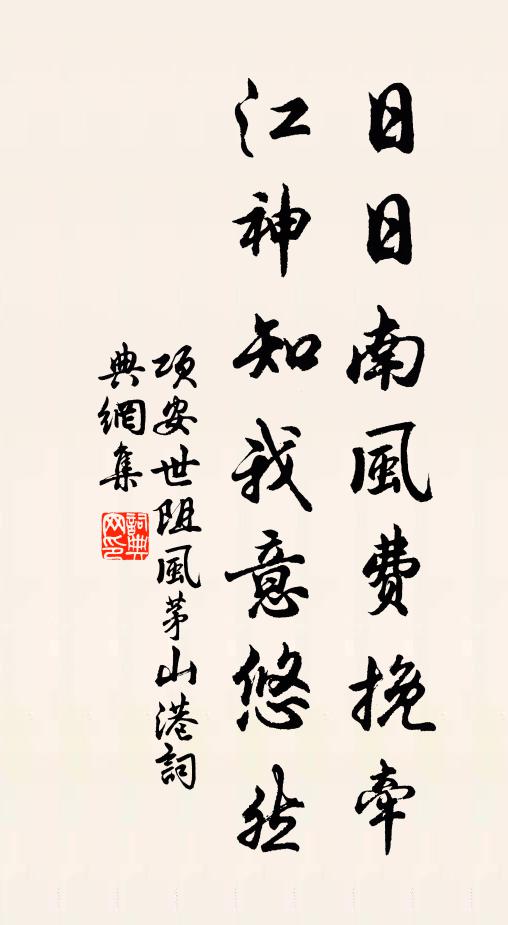 日日南風費挽牽
江神知我意悠然
項安世阻風茅山港詞
典網集
詞典
网印